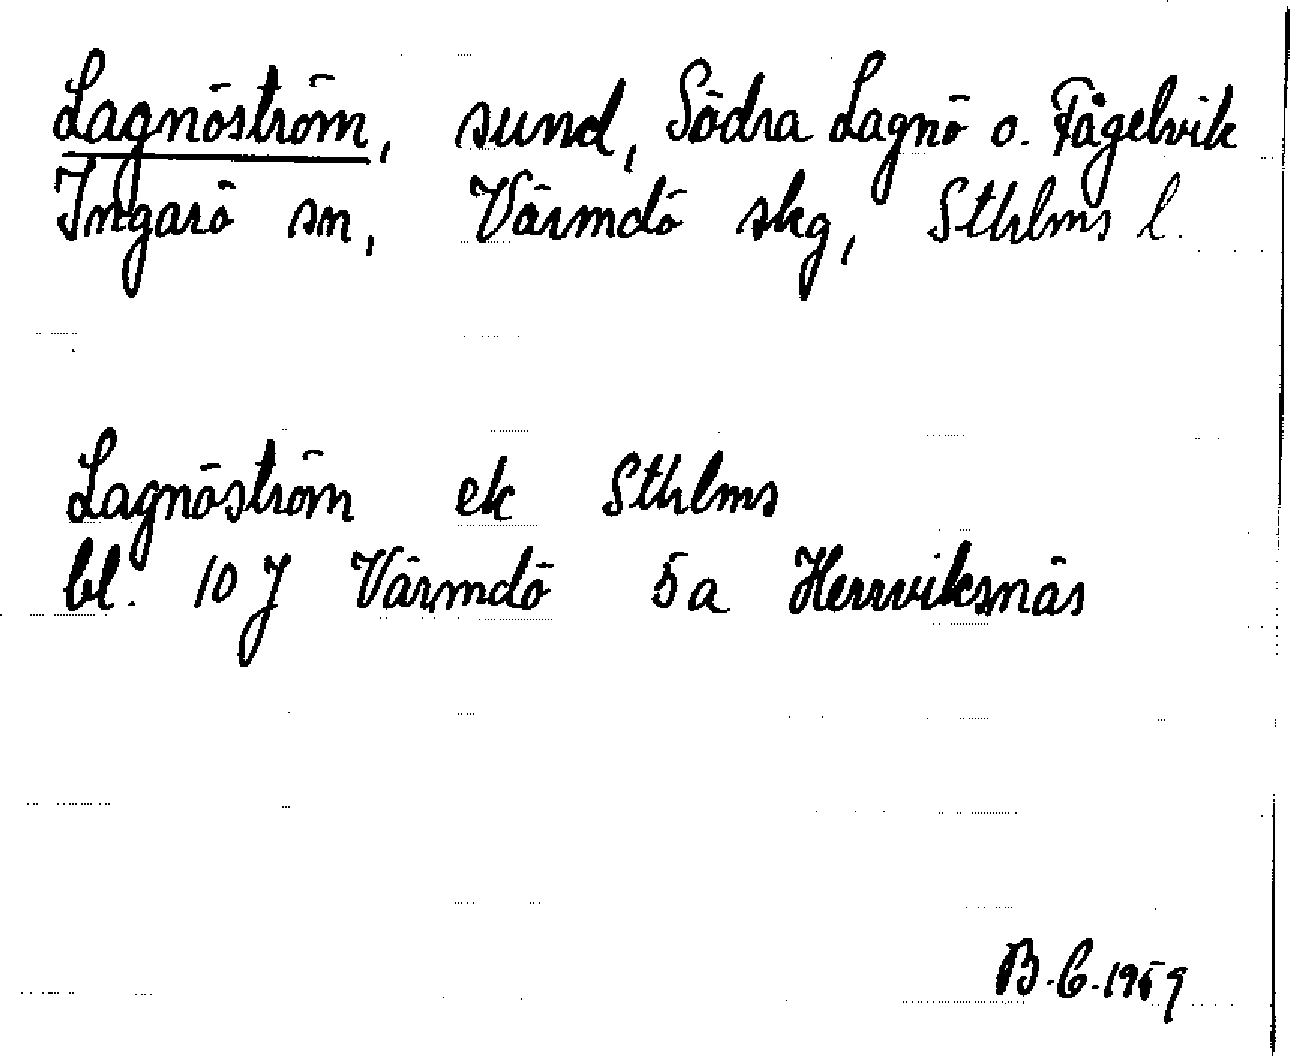 Lagnöström, sund, Södra Lagnö o. Fågelvik
Ingarö sn, Värmdö skg, Sthlms l.
Lagnöström ek Sthlms
bl. 10 J Värmdö 5a Herrviksnäs
B.C. 1959